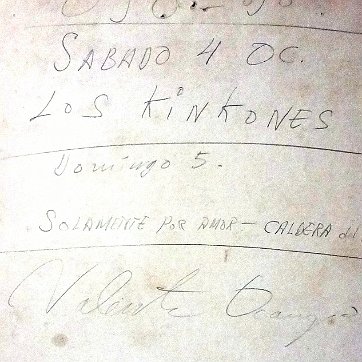 SABADO 4 OC.
LOS KINKONES
Domingo 5.
SOLAMENTE POR AMOR — CALDERA del
Valente